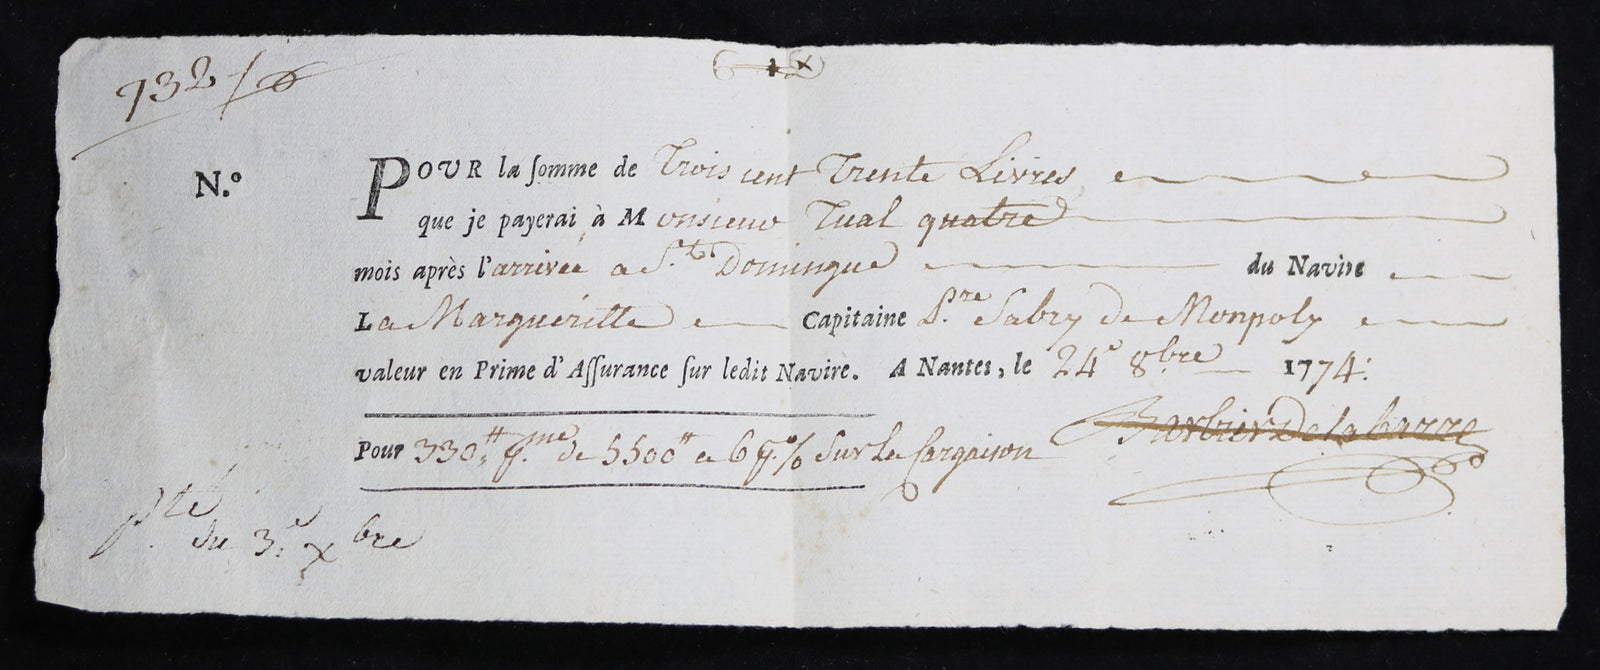 732
N.º
POUR la somme de Trois cent Trente Livres
que je payerai à Monsieur Tual quatre
mois après l'arrivée a S.t Domingue du Navire
La Margueritte Capitaine P.re Sabry de Monpoly
valeur en Prime d'Assurance sur ledit Navire. A Nantes, le 24e 8bre 1774.
Pour 330tt p.me de 5500tt a 6 p.% Sur La Cargaison
Barbier De la barre
du 3.e Xbre